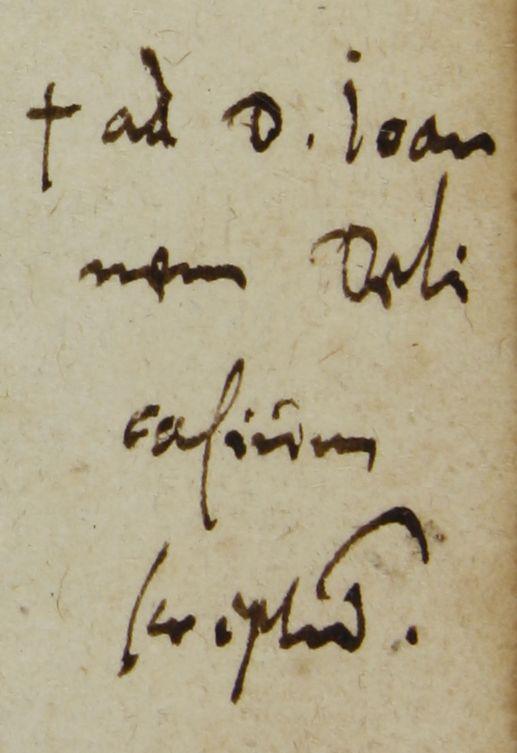 † ad D. Ioan
nem Deli
casium
scriptū.